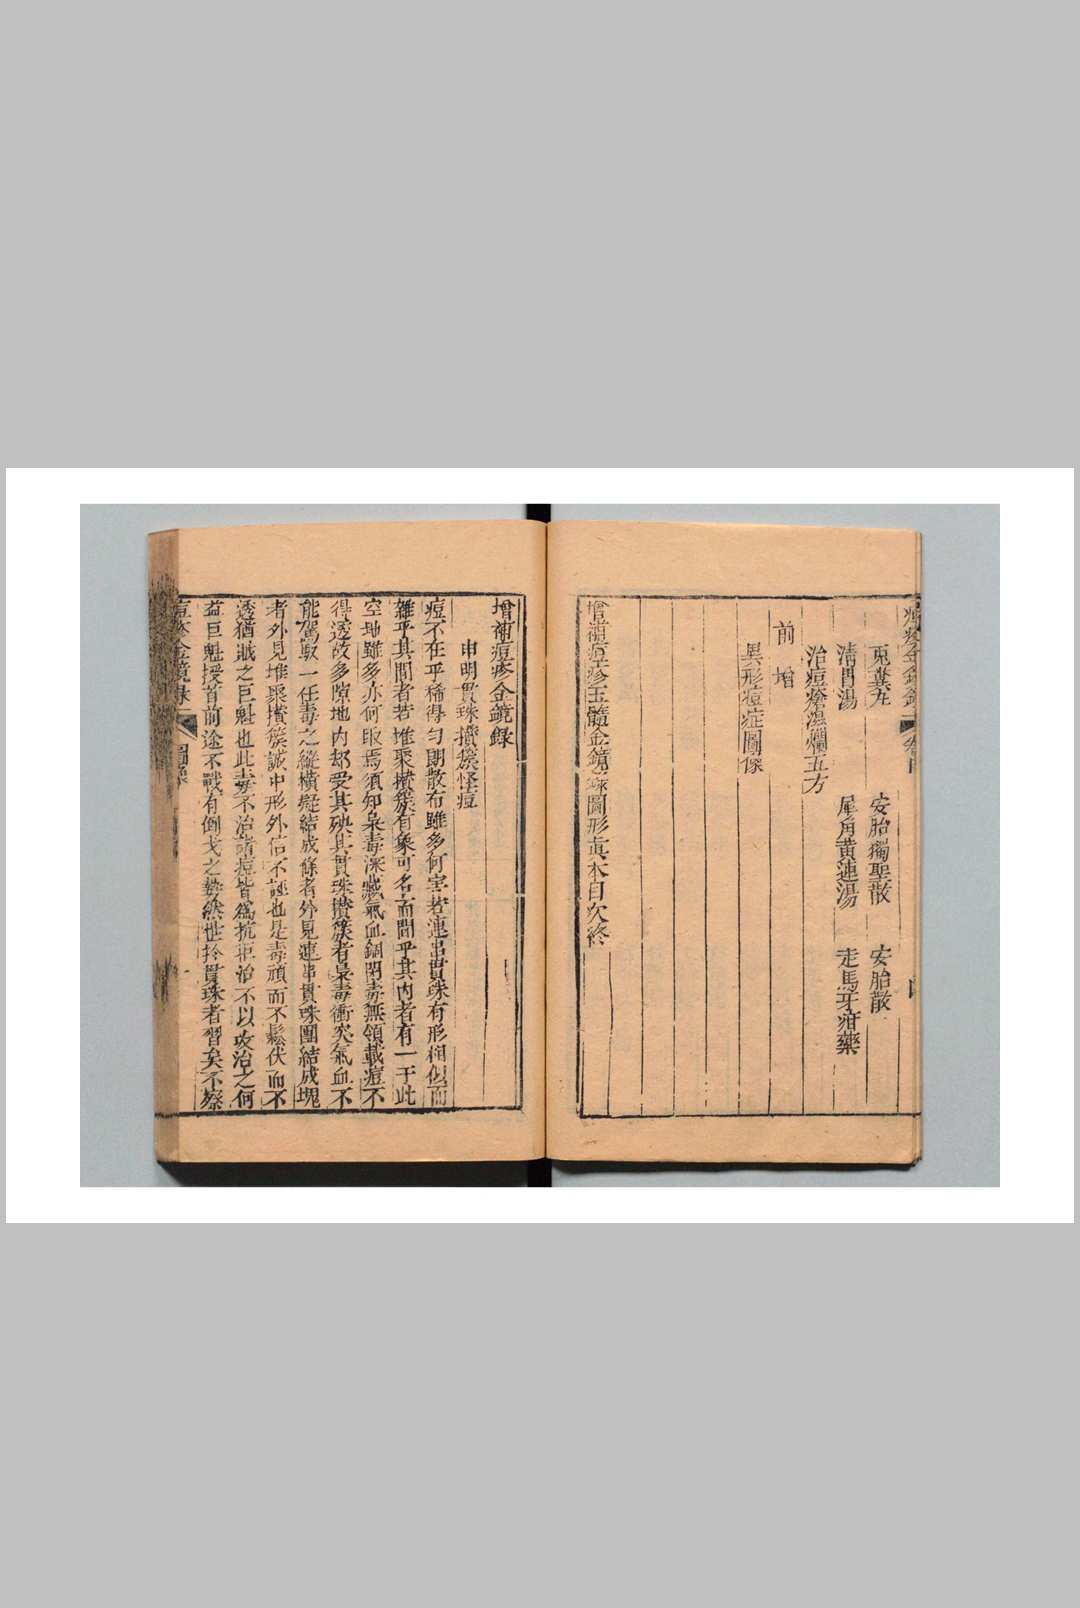 兎糞左 安胎獨聖散 安胎散
清胃湯 犀角黃連湯 走馬牙疳藥
治痘瘡濕爛五方
前增
異形痘症圖像
增補痘疹玉髓金鏡錄圖形真本目次終
增補痘疹金鏡錄
申明貫珠攅簇怪痘
痘不在乎稀得勻朗散布雖多何害若連串貫珠有形相似而
雜乎其間者若堆聚攅簇有象可名而間乎其内者有一于此
空地雖多亦何取焉須知梟毒深藏氣血錮閉毒無領載痘不
得透故多隙地内却受其殃其貫珠攅簇者梟毒衝突氣血不
能駕馭一任毒之縱橫凝結成條者外見連串貫珠團結成塊
者外見堆聚攅簇誠中形外信不誣也是毒頑而不鬆伏而不
透猶賊之巨魁也此毒不治諸痘皆爲抗拒治不以攻治之何
益巨魁授首前途不戰有倒戈之勢然世於貫珠者習矣不察
痘疹金鏡錄 圖像